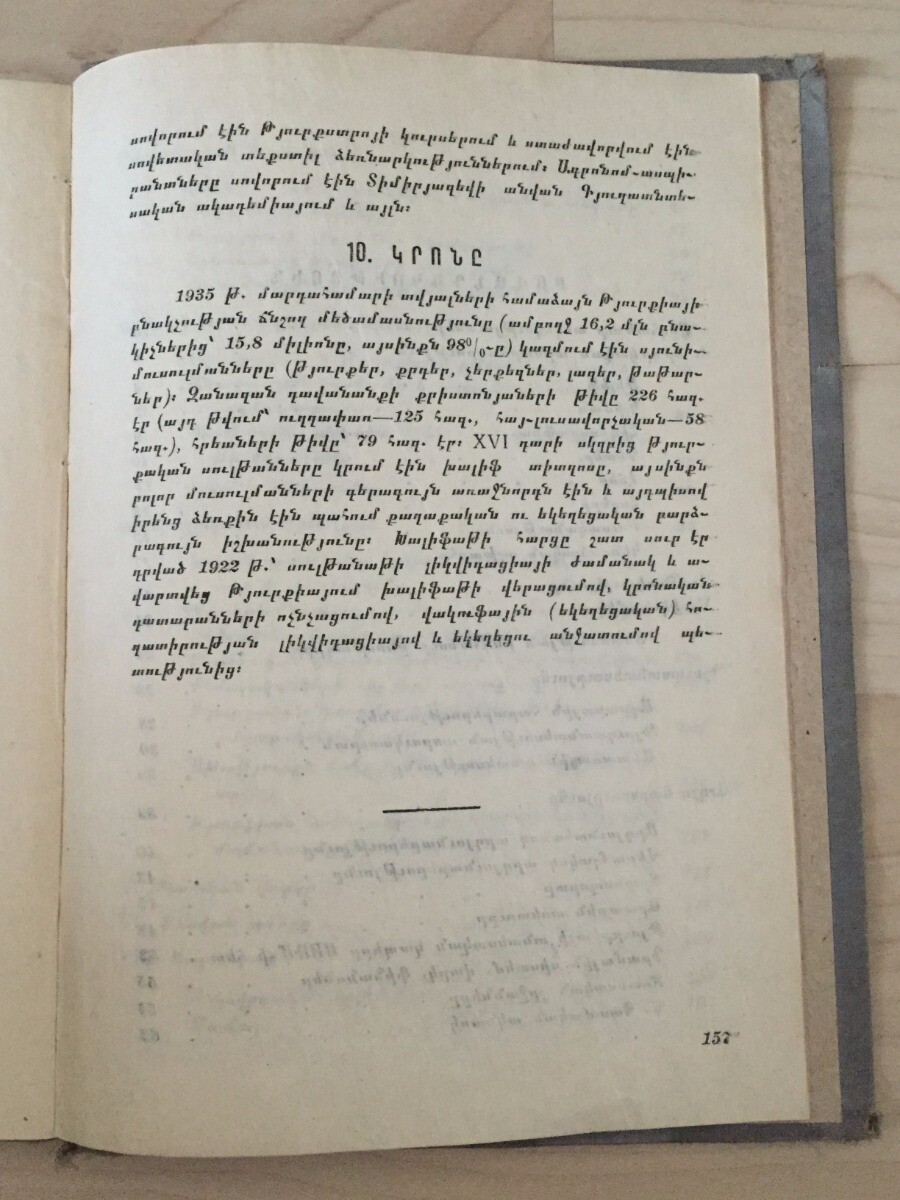 սովորում էին Թյուրքստրոյի կուրսերում և ստաժավորվում էին
սովետական տեքստիլ ձեռնարկություններում։ Ագրոնոմ-ասպի-
րանտները սովորում էին Տիմիրյազեվի անվան Գյուղատնտե-
սական ակադեմիայում և այլն։
10. ԿՐՈՆԸ
1935 թ. մարդահամարի տվյալների համաձայն Թյուրքիայի
բնակչության ճնշող մեծամասնությունը (ամբողջ 16,2 մլն բնա-
կիչներից՝ 15,8 միլիոնը, այսինքն 98⁰/₀-ը) կազմում էին սյունի-
մուսուլմանները (թյուրքեր, քրդեր, չերքեզներ, լազեր, թաթար-
ներ)։ Զանազան դավանանքի քրիստոնյաների թիվը 226 հազ.
էր (այդ թվում՝ ուղղափառ—125 հազ., հայ-լուսավորչական—58
հազ.), հրեաների թիվը՝ 79 հազ. էր։ XVI դարի սկզրից թյուր-
քական սուլթանները կրում էին խալիֆ տիտղոսը, այսինքն
բոլոր մուսուլմանների գերագույն առաջնորդն էին և այդպիսով
իրենց ձեռքին էին պահում քաղաքական ու եկեղեցական բարձ-
րագույն իշխանությունը։ Խալիֆաթի հարցը շատ սուր էր
դրված 1922 թ.՝ սուլթանաթի լիկվիդացիայի ժամանակ և ա-
վարտվեց Թյուրքիայում խալիֆաթի վերացումով, կրոնական
դատարանների ոչնչացումով, վակուֆային (եկեղեցական) հո-
ղատիրության լիկվիդացիայով և եկեղեցու անջատումով պե-
տությունից։
157